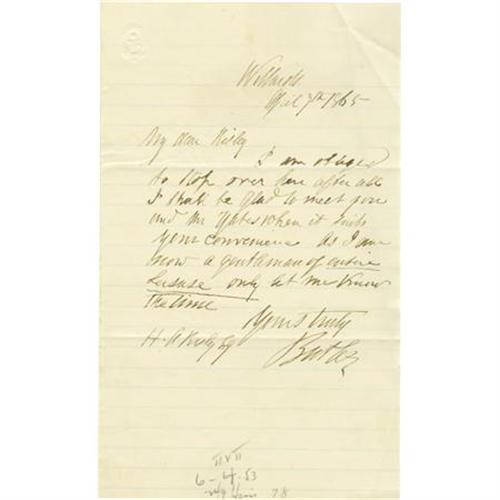 Willards
April 7th 1865
My dear Risley
I am obliged
to stop over here after all
I shall be glad to meet you
and Mr Yates when it suits
your convenience as I am
now a gentleman of entire
leisure only let me know
the time
Yours truly
Butler
H. A. Risley Esq
6-4-53
78